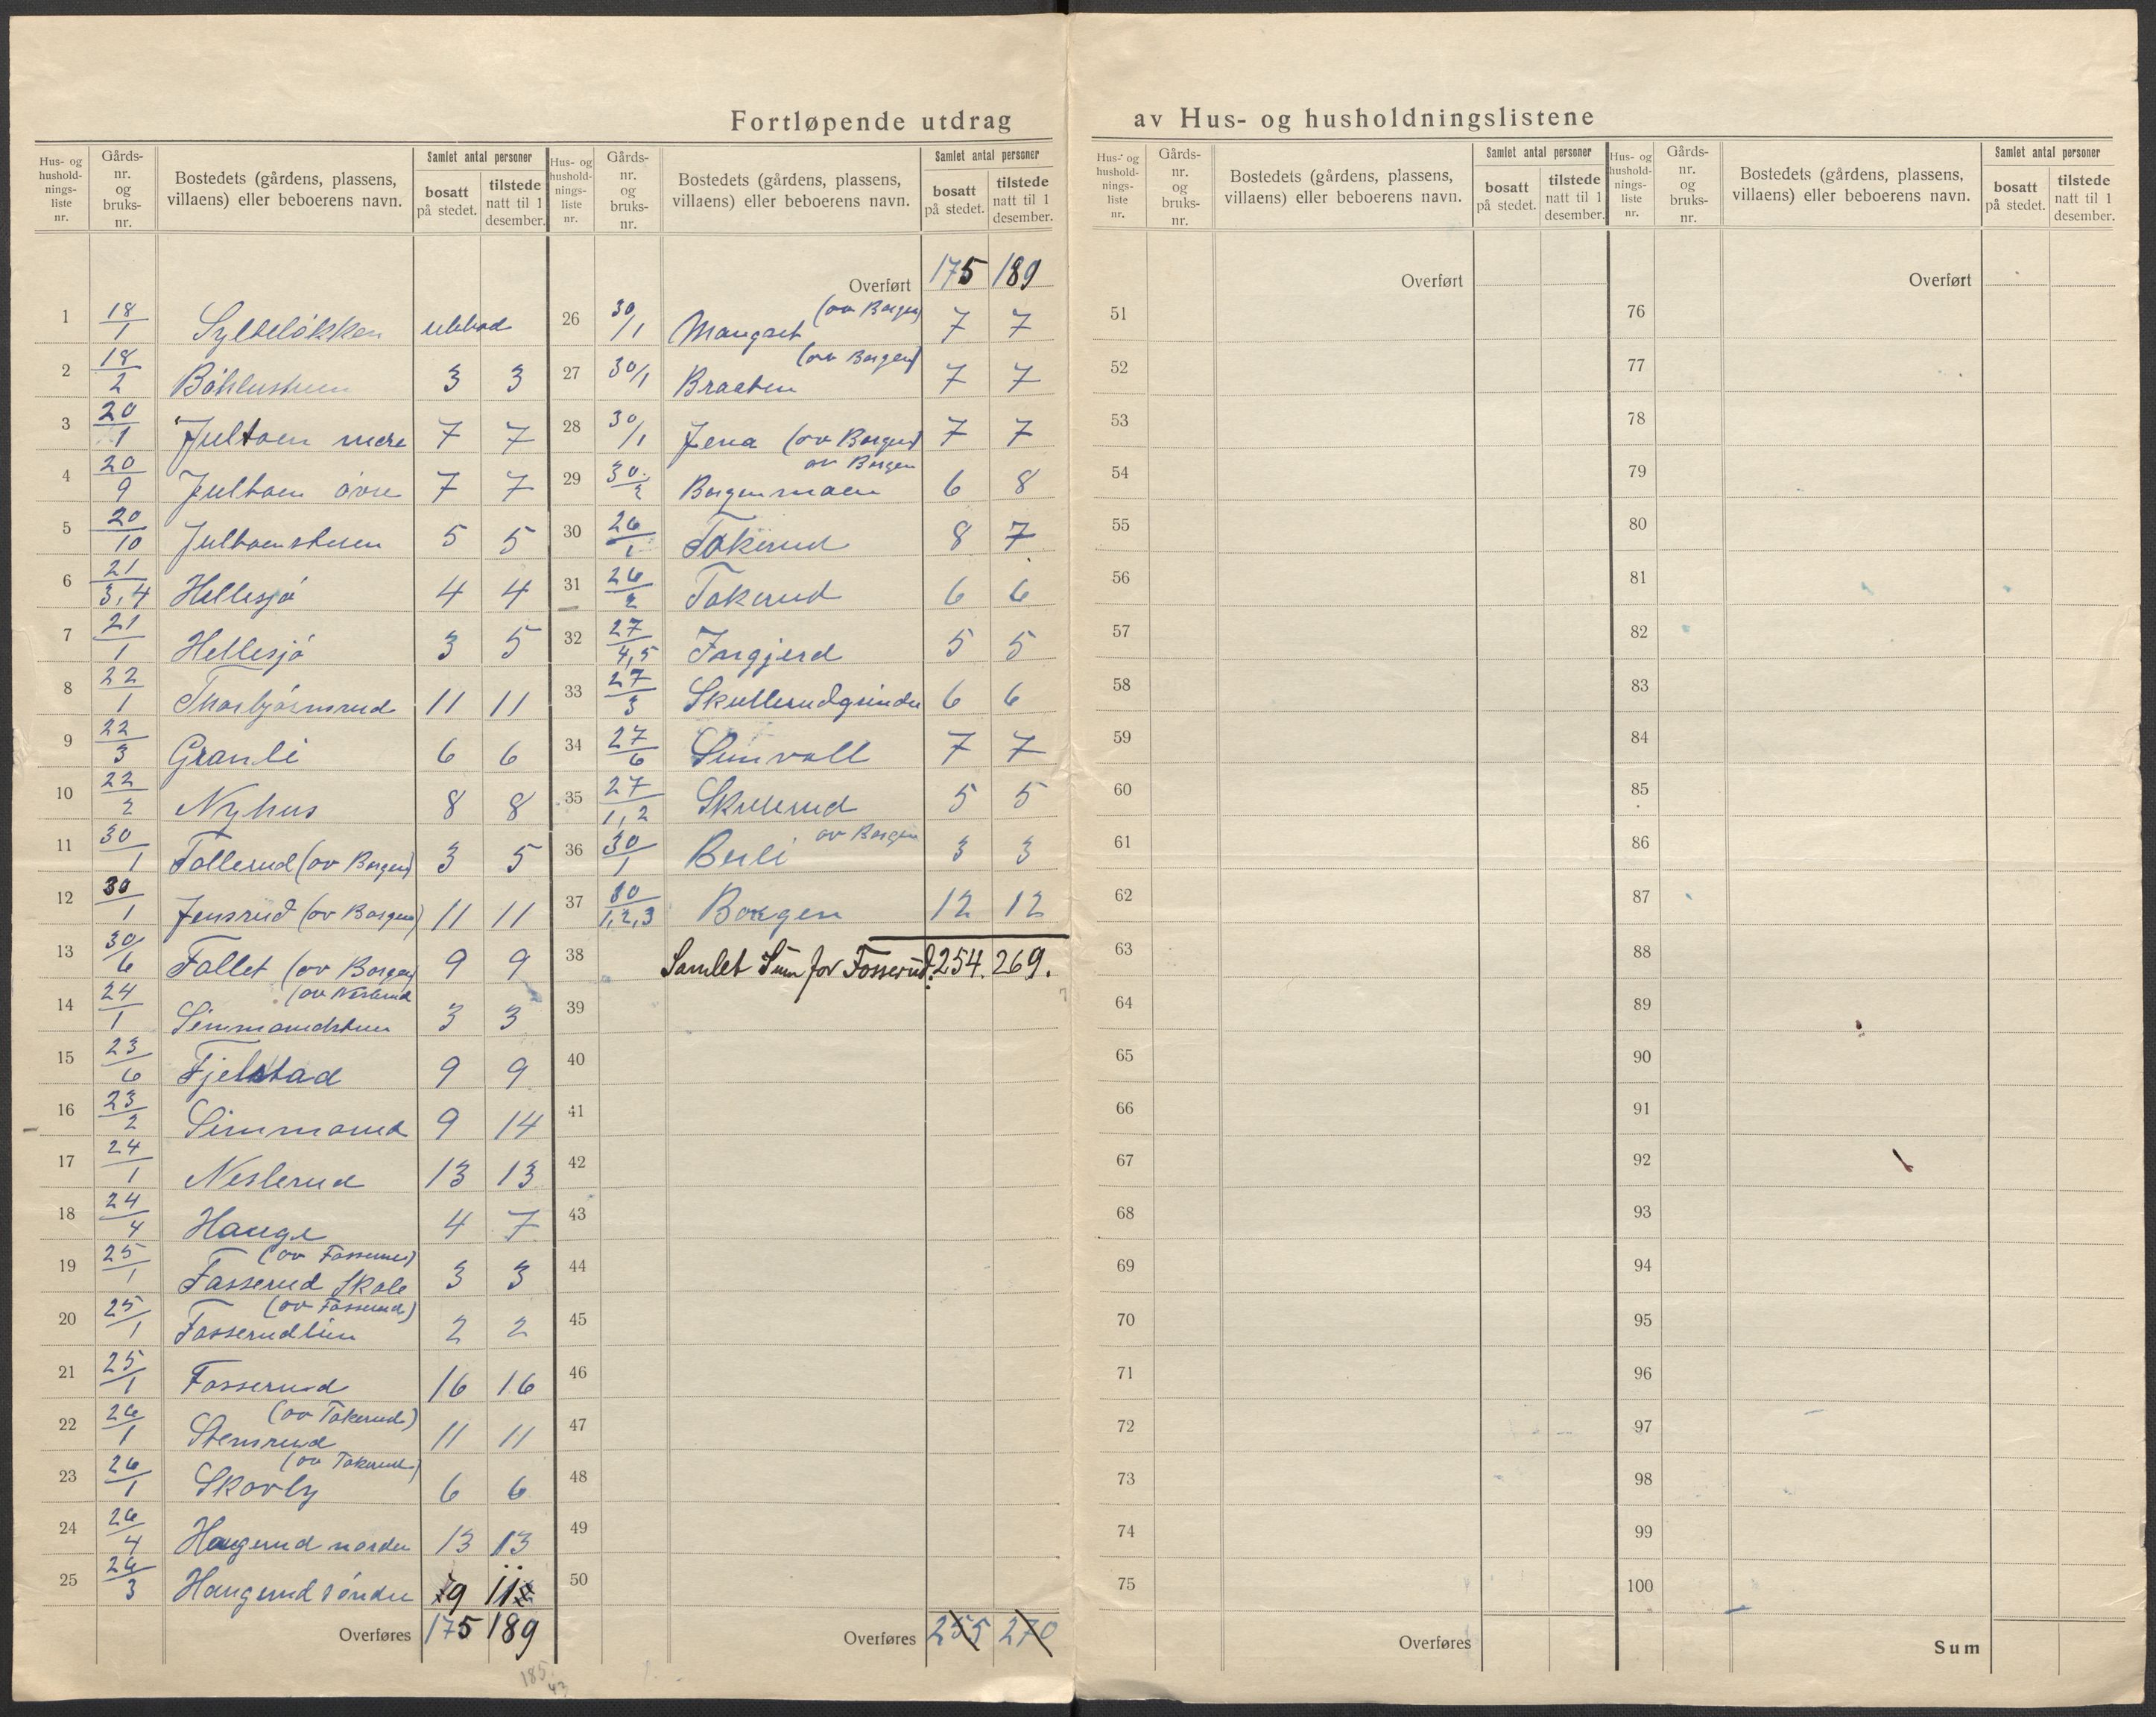 Fortløpende utdrag av Hus- og husholdningslistene
Hus- og hushold-nings-liste nr. Gårds-nr. og bruks-nr. Bostedets (gårdens, plassens, villaens) eller beboerens navn. Samlet antal personer bosatt på stedet. tilstede natt til 1 desember.
1 18/1 Sylteløkken ubebod
2 18/2 Bøhlerstuen 3 3
3 20/1 Jultoen nedre 7 7
4 20/9 Jultoen øvre 7 7
5 20/10 Jultoenstuen 5 5
6 21/3,4 Hellesjø 4 4
7 21/1 Hellesjø 3 5
8 22/1 Thorbjørnsrud 11 11
9 22/3 Granli 6 6
10 22/2 Nyhus 8 8
11 30/1 Tollerud (av Borgen) 3 5
12 30/1 Jensrud (av Borgen) 11 11
13 30/6 Fallet (av Borgen) 9 9
14 24/1 (av Neslerud
Simmarudstuen 3 3
15 23/6 Fjelstad 9 9
16 23/2 Simmarud 9 14
17 24/1 Neslerud 13 13
18 24/4 Hauge 4 7
19 25/1 (av Fosserud)
Fosserud Skole 3 3
20 25/1 (av Fosserud)
Fosserudlien 2 2
21 25/1 Fosserud 16 16
22 26/1 (av Takerud)
Stensrud 11 11
23 26/1 (av Takerud)
Skovly 6 6
24 26/4 Haugerud nordre 13 13
25 26/3 Haugerud søndre 9 11
Overføres 175 189
185
43
Hus- og hushold-nings-liste nr. Gårds-nr. og bruks-nr. Bostedets (gårdens, plassens, villaens) eller beboerens navn. Samlet antal personer bosatt på stedet. tilstede natt til 1 desember.
Overført 175 189
26 30/1 (av Borgen)
Mangset 7 7
27 30/1 (av Borgen)
Braaten 7 7
28 30/1 Jena (av Borgen) 7 7
29 30/2 av Borgen
Borgenmoen 6 8
30 26/1 Takerud 8 7
31 26/2 Takerud 6 6
32 27/4,5 Ingjerd 5 5
33 27/3 Skullerudgrinden 6 6
34 27/6 Sunvoll 7 7
35 27/1,2 Skullerud 5 5
36 30/1 av Borgen
Berli 3 3
37 30/1,2,3 Borgen 12 12
38 Samlet Sum for Fosserud: 254. 269.
39
40
41
42
43
44
45
46
47
48
49
50
Overføres 255 270
Hus- og hushold-nings-liste nr. Gårds-nr. og bruks-nr. Bostedets (gårdens, plassens, villaens) eller beboerens navn. Samlet antal personer bosatt på stedet. tilstede natt til 1 desember.
Overført
51
52
53
54
55
56
57
58
59
60
61
62
63
64
65
66
67
68
69
70
71
72
73
74
75
Overføres
Hus- og hushold-nings-liste nr. Gårds-nr. og bruks-nr. Bostedets (gårdens, plassens, villaens) eller beboerens navn. Samlet antal personer bosatt på stedet. tilstede natt til 1 desember.
Overført
76
77
78
79
80
81
82
83
84
85
86
87
88
89
90
91
92
93
94
95
96
97
98
99
100
Sum